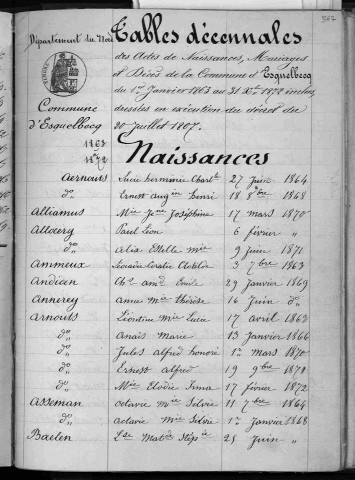 Département du Nord
Tables décennales
des Actes de Naissances, Mariages
et Décès de la Commune d'Esquelbecq
du 1er Janvier 1863 au 31 Xbre 1872 inclus,
dressées en exécution du décret du
20 Juillet 1807.
Commune
d'Esquelbecq
1863
1872
Naissances
Aernouts Lucie herminie Charl.te 27 Juin 1864
do Ernest augin henri 18 8bre 1868
Altiamus Mie Jne Joséphine 17 mars 1870
Alloery Paul Léon 6 février "
do Alix Estelle mie 9 Juin 1871
Ammeux Léocadie Coralie Clotilde 3 7bre 1863
Andicen Ch.s amd Emile 29 Janvier 1869
Annerey anna mie thérèse 16 Juin do
Arnouts Léontine mie Lucie 17 avril 1863
do Anaïs Marie 13 Janvier 1866
do Jules alfred honoré 1er mars 1870
do Ernest alfred 19 9bre 1871
do Mie Elodie Irma 17 février 1872
Asseman octavie mie Silvie 11 7bre 1864
do octavie mie Silvie 1er Janvier 1868
Baelen 25 Juin "